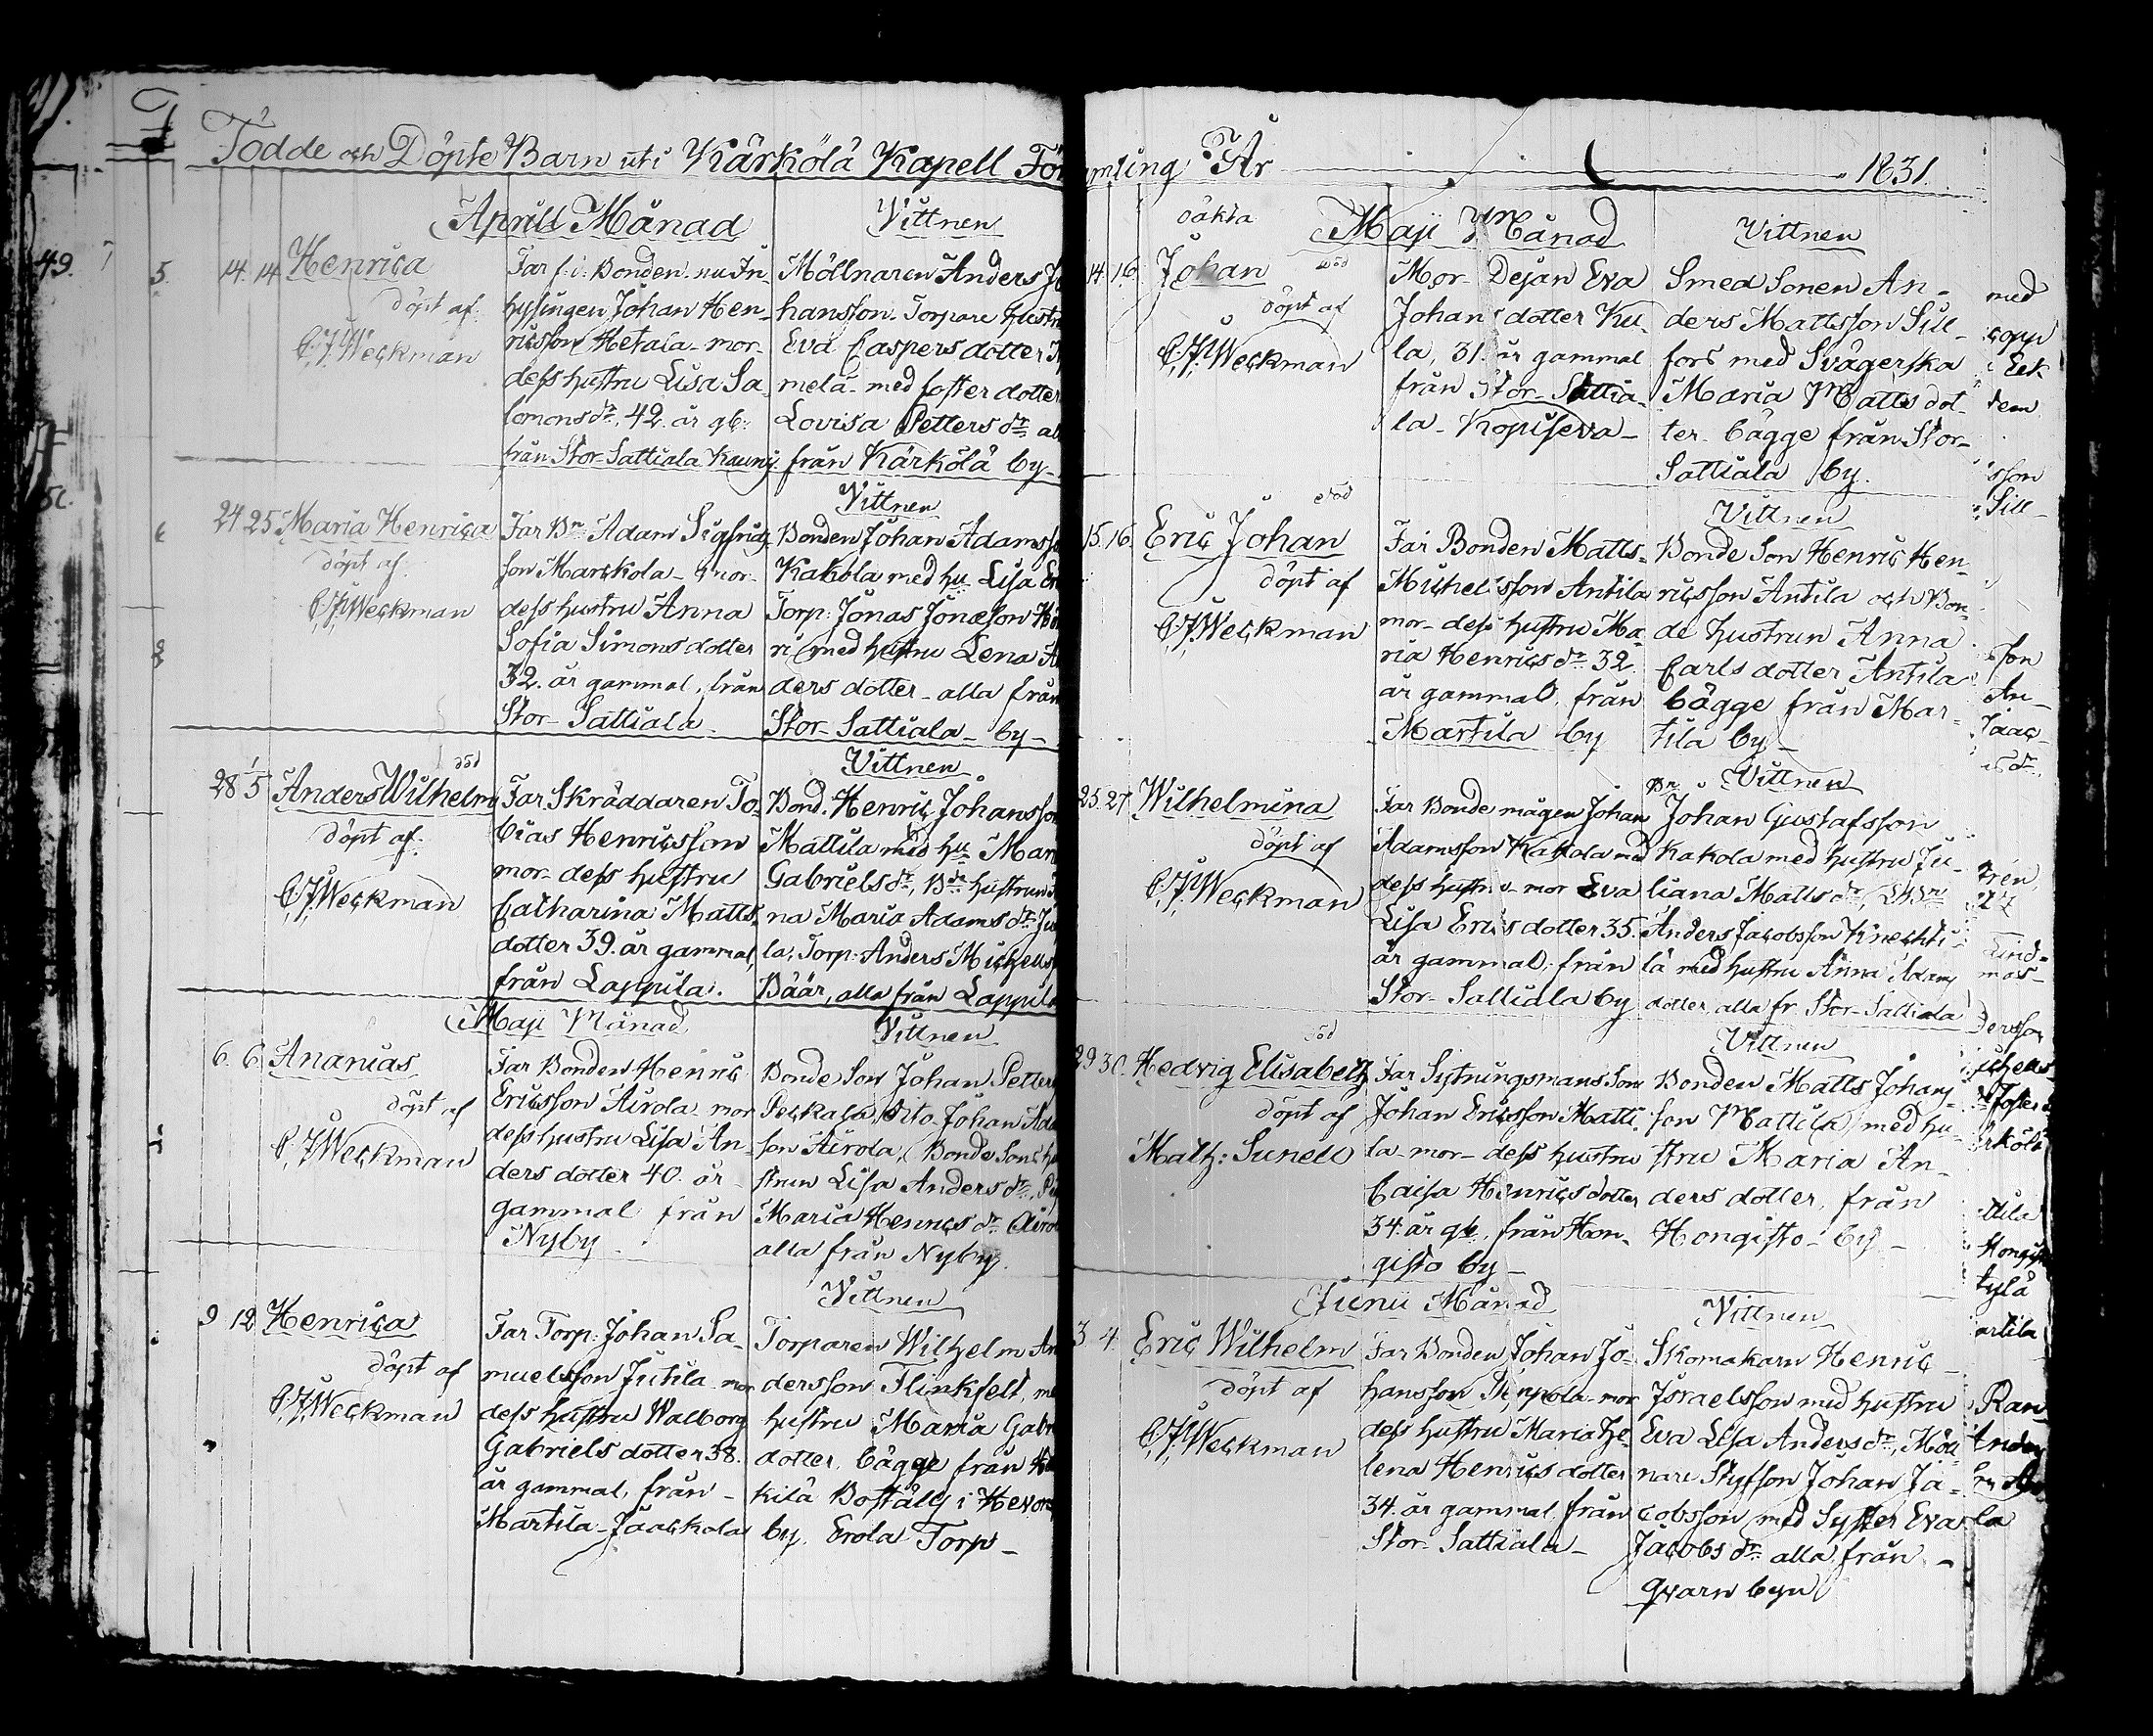 Födde och Döpte Barn uti Kärkölä Kapell För
April Månad
Vittnen
14. 14 Henrica
döpt af
C.J. Weckman
Far f. d. Bonden nu In-
hysingen Johan Hen-
ricsson Hetala mor-
dess hustru Lisa Sa-
lomons dr. 42 år gb:
från Stor-Sattiala
Möllnaren Anders
hansson Torpare hustr
Eva Caspers dotter
melä med foster dotter
Lovisa Petters dr
från Kärkölä by
24 25 Maria Henrica
döpt af
C.J. Weckman
Far Bn Adam Sigfrids
son Marckola mor-
dess hustru Anna
Sofia Simons dotter
32. år gammal, från
Stor-Sattiala
Vittnen
Bonden Johan Adamsso
Kakola med hu Lisa
Torp: Jonas Jonasson
ri med hustru Lena
ders dotter alla från
Stor-Sattiala by
28 1/5 Anders Wilhelm
död
döpt af
C.J. Weckman
Far Skräddaren To-
bias Henricsson
mor dess hustru
Catharina Matts
dotter 39. år gammal,
från Lappila.
Vittnen
Bond. Henric Johansson
Mattila med hu Mari
Gabriels dr, Bde hustrun
na Maria Adams dr
la, Torp: Anders Michels
Bäär, alla från Lappila
Maji Månad
6. 6 Ananias
döpt af
C.J. Weckman
Far Bonden Henric
Ericsson Airola mor
dess hustru Lisa An-
ders dotter 40. år
gammal från
Nyby
Vittnen
Bonde Son Johan Petter
Peckala, Dito Johan
son Airola, Bonde Sons
strun Lisa Anders dr,
Maria Henrics dr Airol
alla från Nyby.
9 12 Henrica
döpt af
C.J. Weckman
Far Torp: Johan Sa-
muelsson Jutila mor
dess hustru Walborg
Gabriels dotter 38.
år gammal, från
Martila Jaackola
Vittnen
Torparen Wilhelm An
dersson Flinkfelt, me
hustru Maria Gabri
dotter, bägge från
kilä Boställe i
by. Erola Torp
amling År 1831.
Maji Månad
Vittnen
14. 16.
oäkta
Johan
död
döpt af
C.J. Weckman
Mor Dejan Eva
Johans dotter Ku-
la, 31. år gammal
från Stor-Sattia-
la
Smed Sonen An-
ders Mattsson Sill-
fors med Svägerska
Maria Matts dot-
ter bägge från Stor-
Sattiala by.
15. 16. Eric Johan
död
döpt af
C.J. Weckman
Far Bonden Matts
Michelsson Antila
mor dess hustru Ma-
ria Henrics dr 32
år gammal, från
Martila by
Vittnen
Bonde Son Henric Hen-
ricsson Antila och Bon-
de hustrun Anna
Carls dotter Antila
bägge från Mar-
tila by
25. 27 Wilhelmina
döpt af
C.J. Weckman
Far Bonde mågen Johan
Adamsson Kakola med
dess hustru mor Eva
Lisa Erics dotter 35.
år gammal, från
Stor-Sattiala by
Bn Vittnen
Johan Gustafsson
Kakola med hustru Ju-
liana Matts dr,
Anders Jacobsson Knechti-
lä med hustru Anna Adams
dotter, alla fr. Stor-Sattiala
29 30. Hedvig Elisabeth
död
döpt af
Math: Sunell
Far Sytningsmans Son
Johan Ericsson Matti-
la mor dess hustru
Caisa Henrics dotter
34. år gb, från Hon-
gisto by
Vittnen
Bonden Matts Johans
son Mattila med hu-
stru Maria An-
ders dotter, från
Hongisto by
Junii Månad
3 4. Eric Wilhelm
döpt af
C.J. Weckman
Far Bonden Johan Jo-
hansson mor
dess hustru Maria He-
lena Henrics dotter
34. år gammal från
Stor-Sattiala
Vittnen
Skomakarn Henric
Israelsson med hustru
Eva Lisa Anders dr, Möll-
nare Styfson Johan Ja-
cobsson med Syster Eva
Jacobs dr alla från
qvarn byn